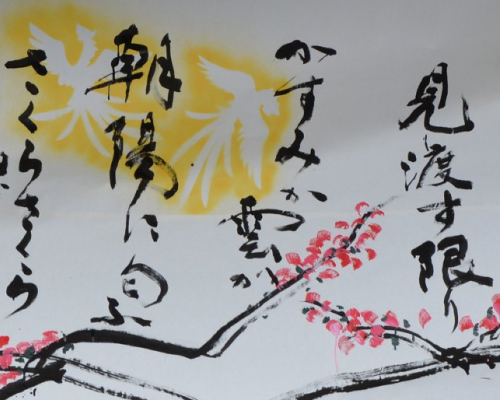 見渡す限り
かすみか雲か
朝陽に匂ふ
さくらさくら